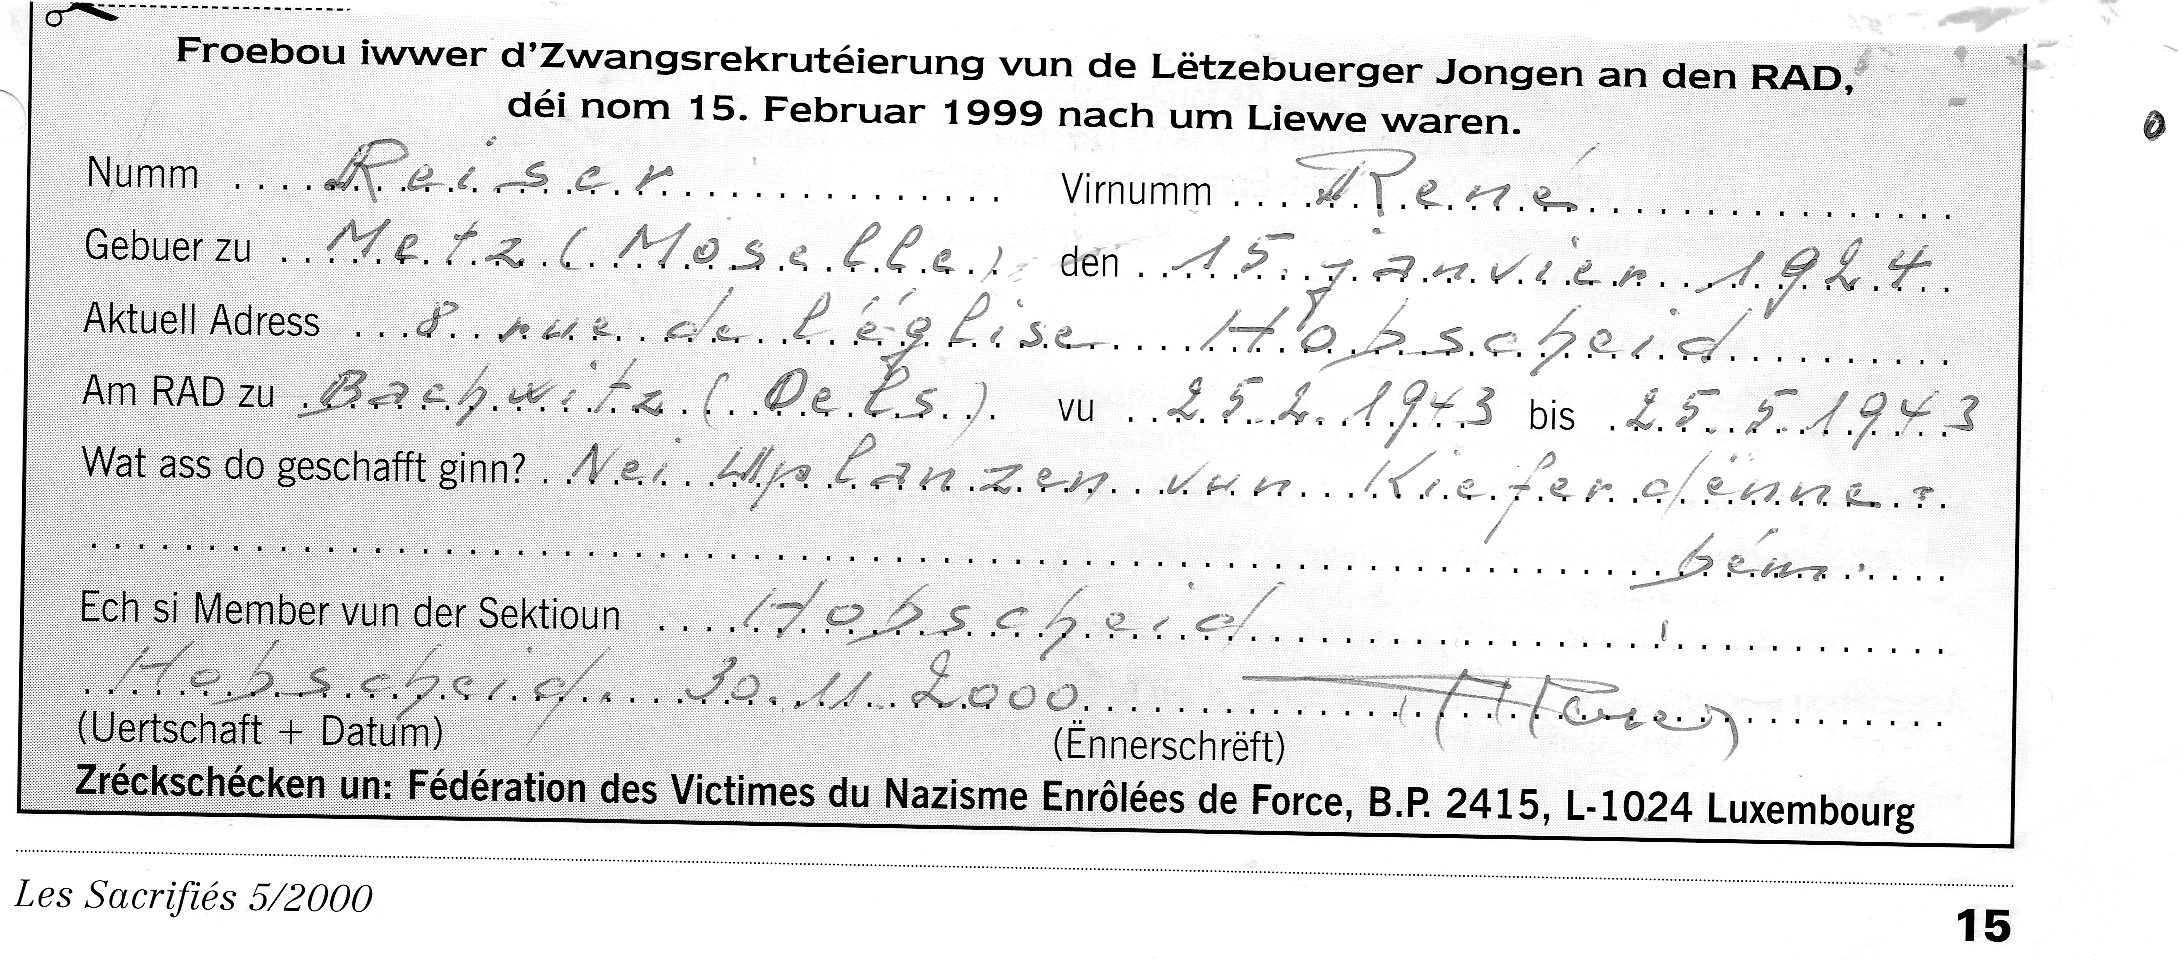 Froebou iwwer d'Zwangsrekrutéierung vun de Lëtzebuerger Jongen an den RAD,
déi nom 15. Februar 1999 nach um Liewe waren.
Numm Reiser Virnumm René
Gebuer zu Metz (Moselle) den 15 janvier 1924
Aktuell Adress 8 rue de l'église Hobscheid
Am RAD zu Bachwitz (Oels) vu 25.2.1943 bis 25.5.1943
Wat ass do geschafft ginn? Nei Uplanzen vun Kieferdënne-
bém.
Ech si Member vun der Sektioun Hobscheid
Hobscheid 30.11.2000
(Uertschaft + Datum) (Ënnerschrëft)
Zréckschécken un: Fédération des Victimes du Nazisme Enrôlées de Force, B.P. 2415, L-1024 Luxembourg
Les Sacrifiés 5/2000
15